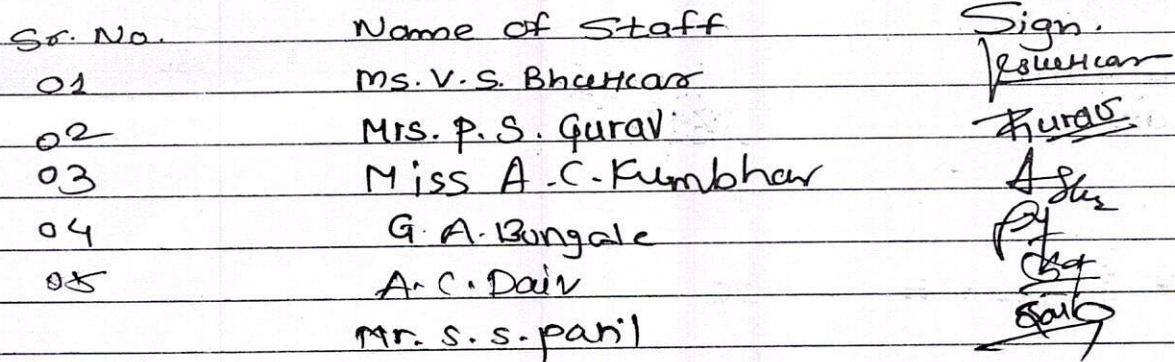 Sr. No. Name of Staff Sign.
01 Ms. V. S. Bhatkar
02 Mrs. P. S. Gurav Gurav
03 Miss A. C. Kumbhar
04 G. A. Bongale
05 A. C. Dain
Mr. S. S. Patil